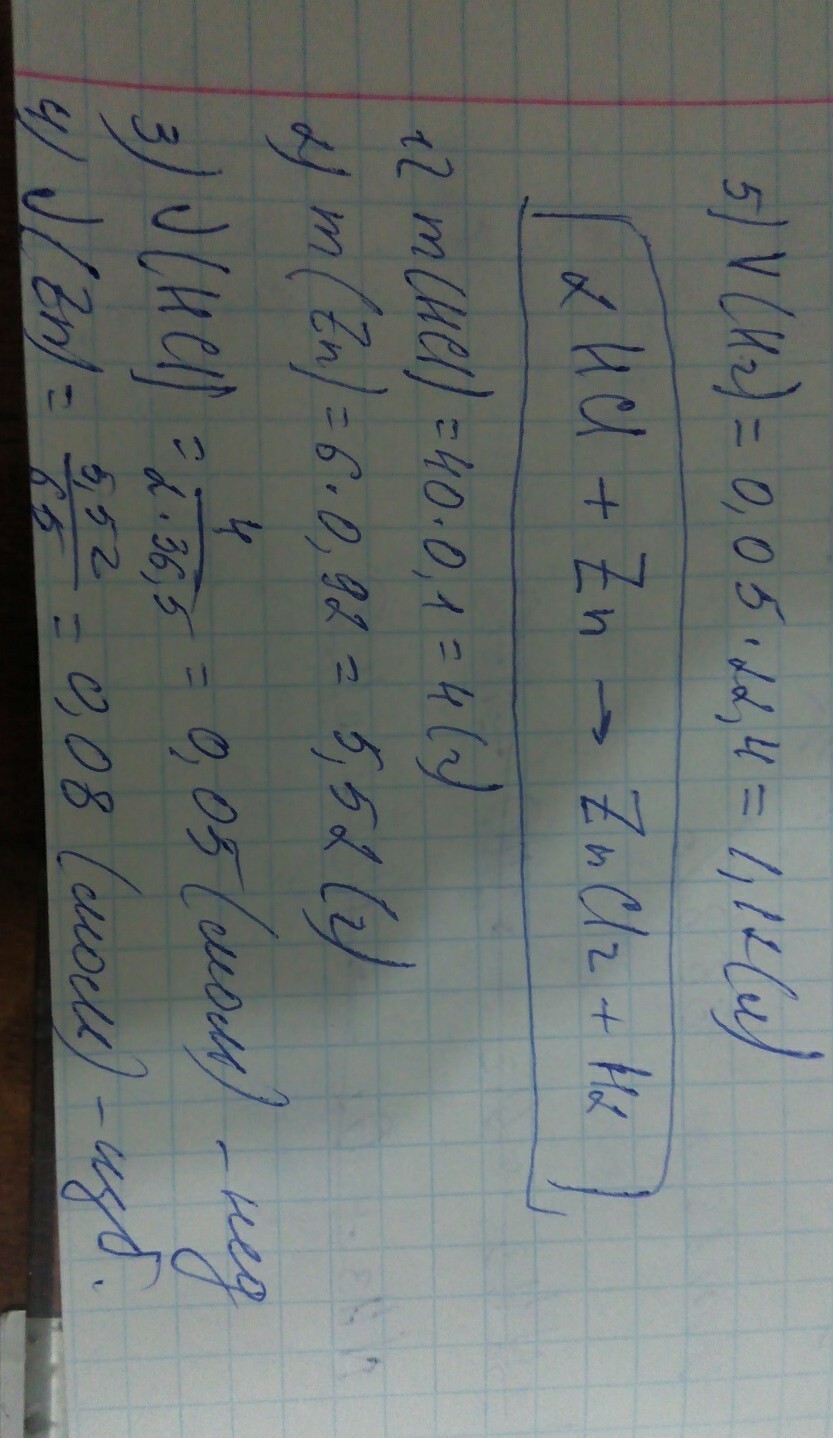 5) V(H2) = 0,05 · 22,4 = 1,12 (л)
2HCl + Zn → ZnCl2 + H2
1) m(HCl) = 40 · 0,1 = 4 (г)
2) m(Zn) = 6 · 0,92 = 5,52 (г)
3) ν(HCl) = 4 / 2 · 36,5 = 0,05 (моль) - нед
4) ν(Zn) = 5,52 / 65 = 0,08 (моль) - изб.